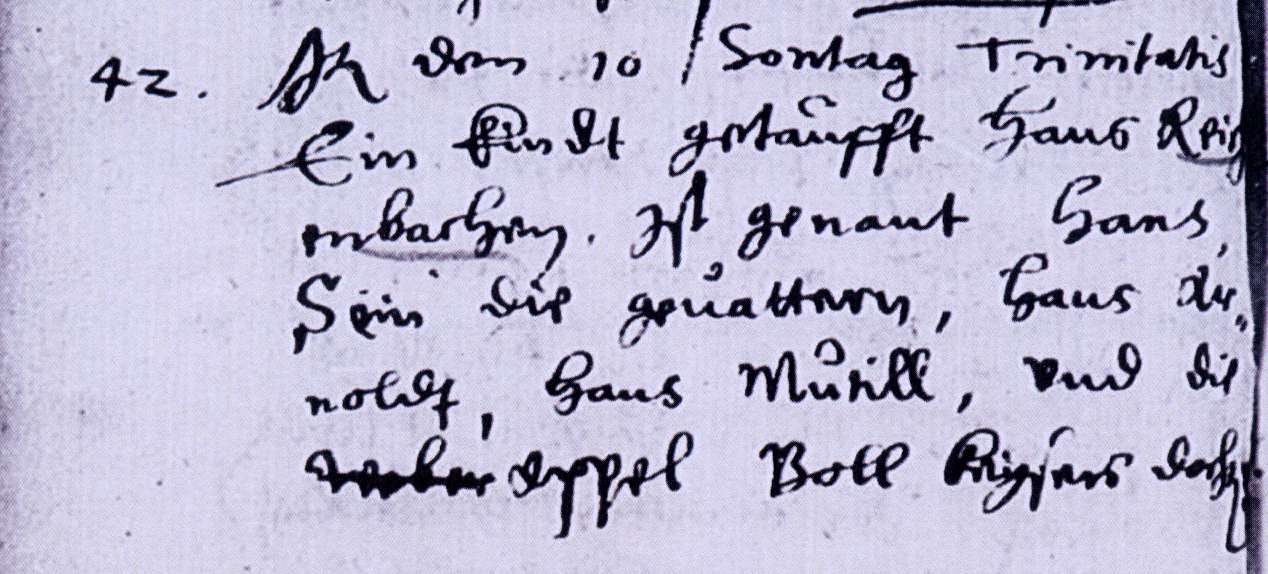 42. A dem 10 / Sontag Trinitatis
Ein Kindt getaufft Hans Reich
enbachen. Ist genant Hans,
Sein die gevattern, Hans Ar„
noldt, Hans Mutill, vnd die
Eppel Boll Keysers docht